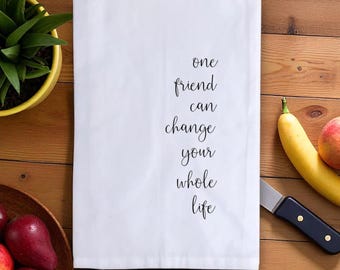 one
friend
can
change
your
whole
life